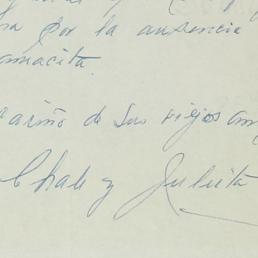 por la ausencia
amacita.
ariño de sus viejos am
Chale y Julieta